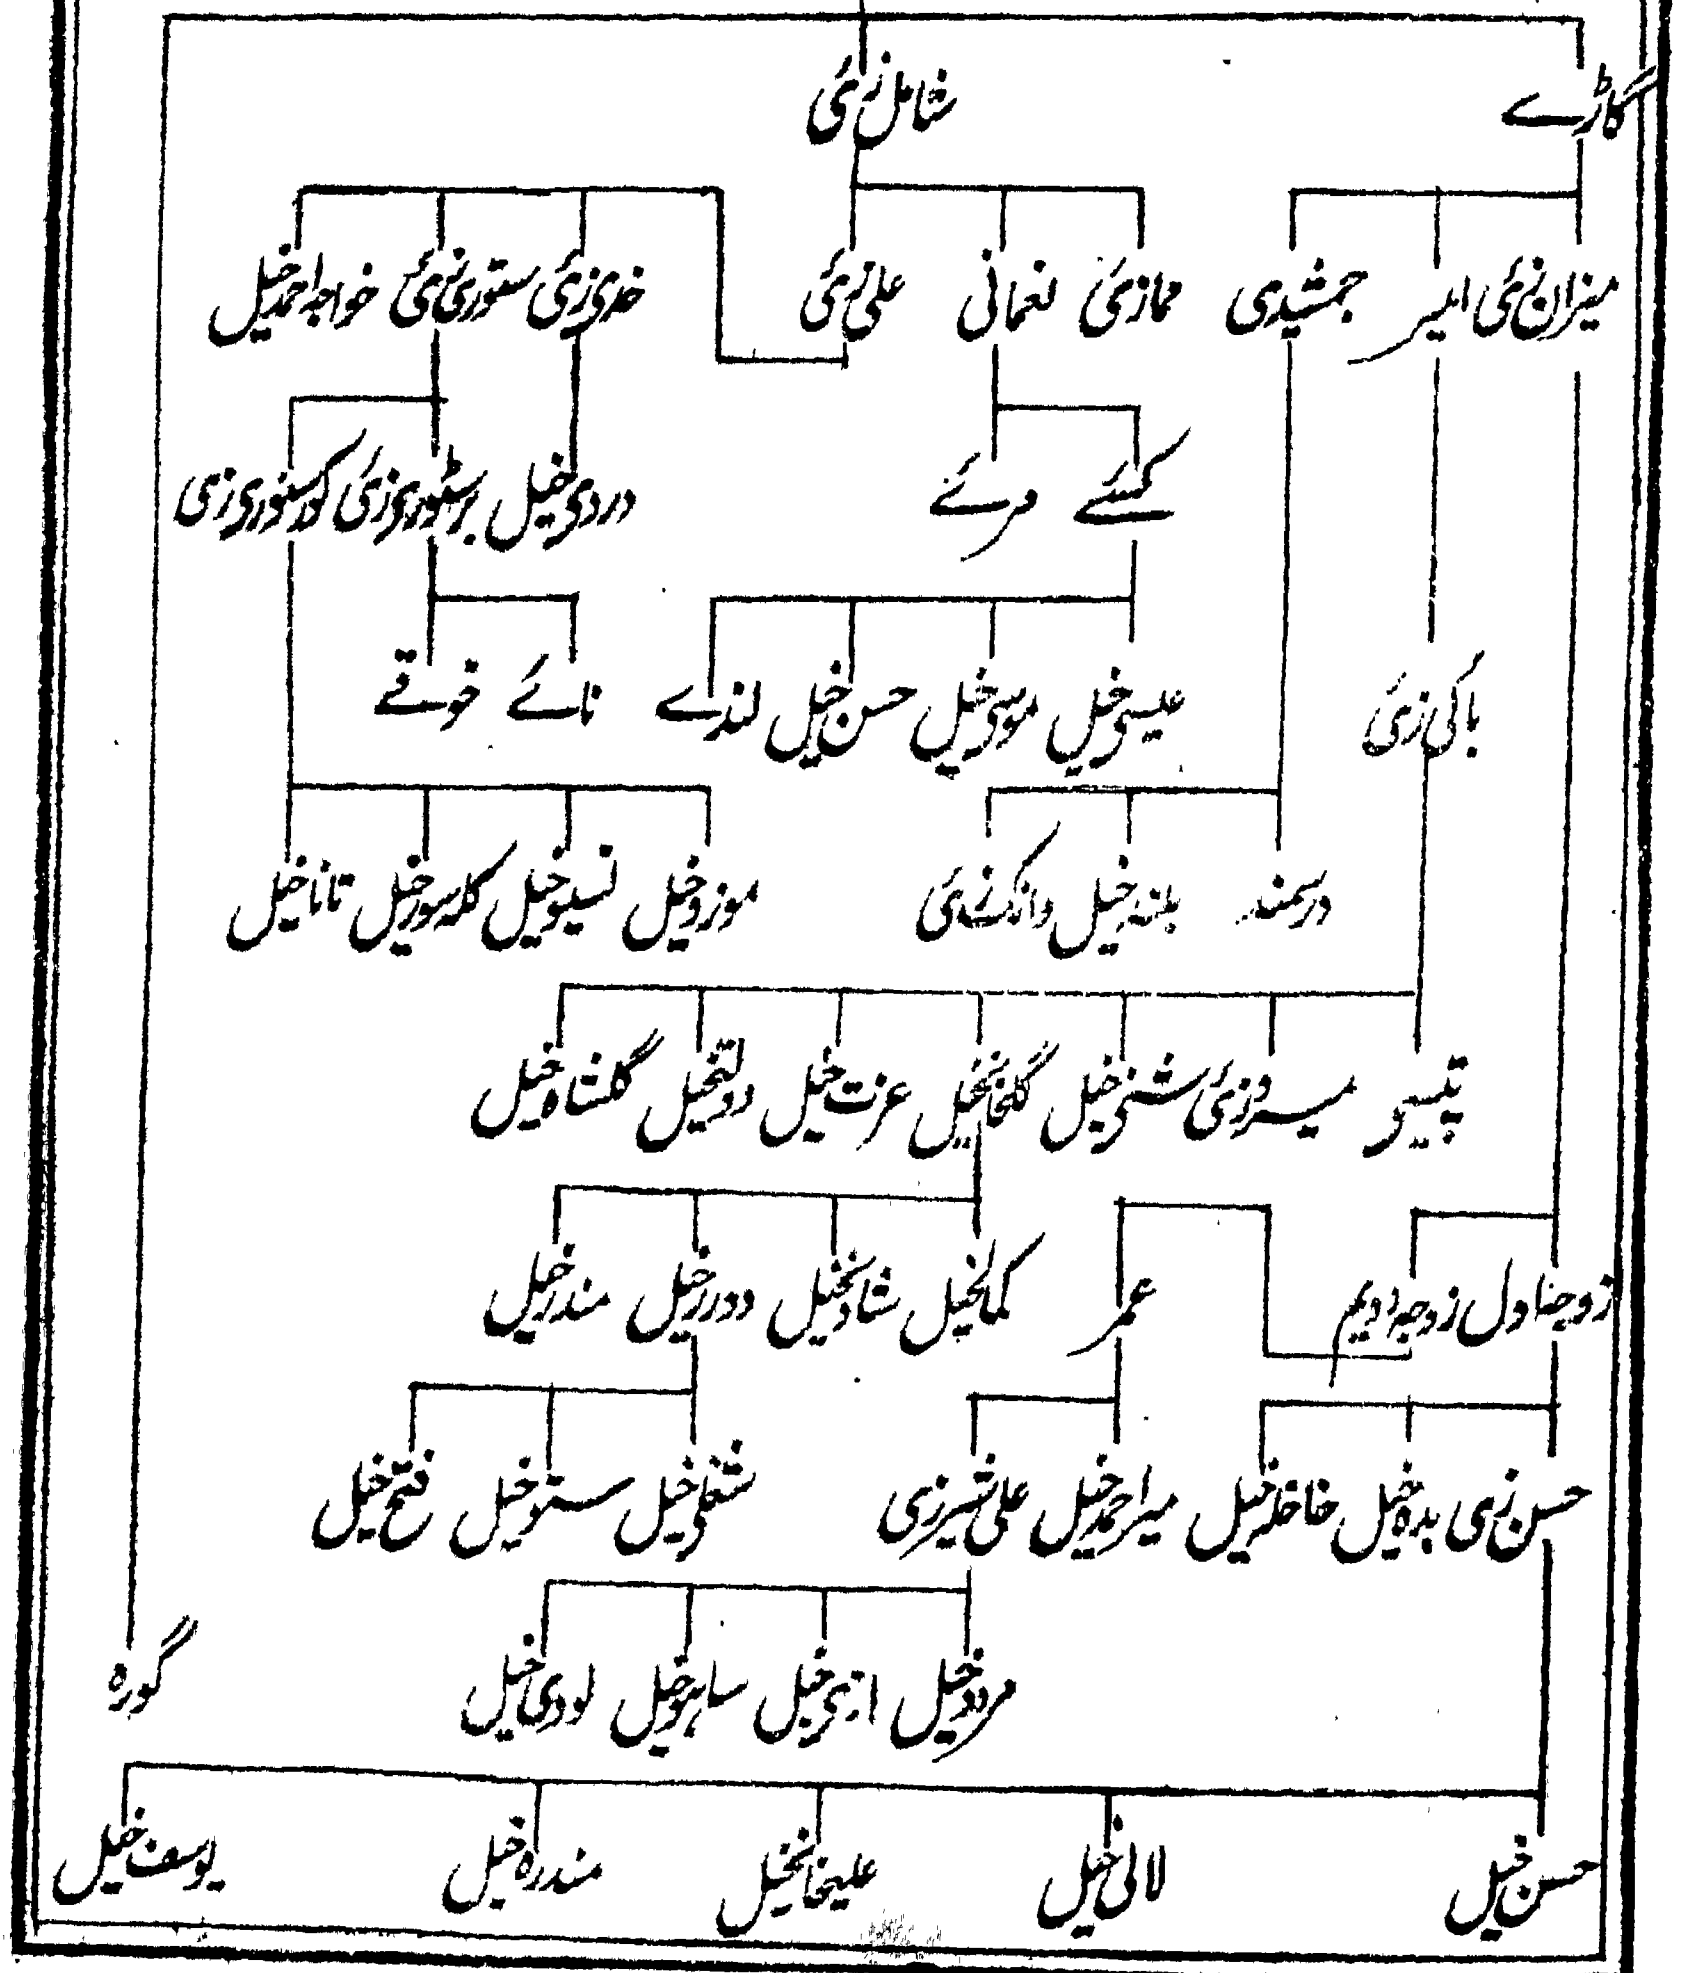 گاڑے شامل زئی
میزان زئی امیر جمشیدی حمازئی نعمانی علی زئی خدی زئی ستوری زئی خواجہ احمد خیل
کسئے مرئے دردی خیل برسٹوری زئی کوز ستوری زئی
باکی زئی عیسی خیل موسی خیل حسن خیل لنڈے نائے خوقے
درسمند بلند خیل وانک زئی موزو خیل نسیو خیل کلہ سور خیل تانا خیل
پتیسی میروزئی شنی خیل گلخانخیل عزت خیل دولتخیل گلشاہ خیل
زوجہ اول زوجہ دویم عمر کمالخیل شادیخیل دورز خیل مندر خیل
حسن زئی بدہ خیل خاخلہ خیل میر احمد خیل علی شیر زئی شغلی خیل ستو خیل فتح خیل
گورہ مردو خیل ابزی خیل ساہو خیل لودی خیل
حسن خیل لالی خیل علیخانخیل مندرہ خیل یوسف خیل